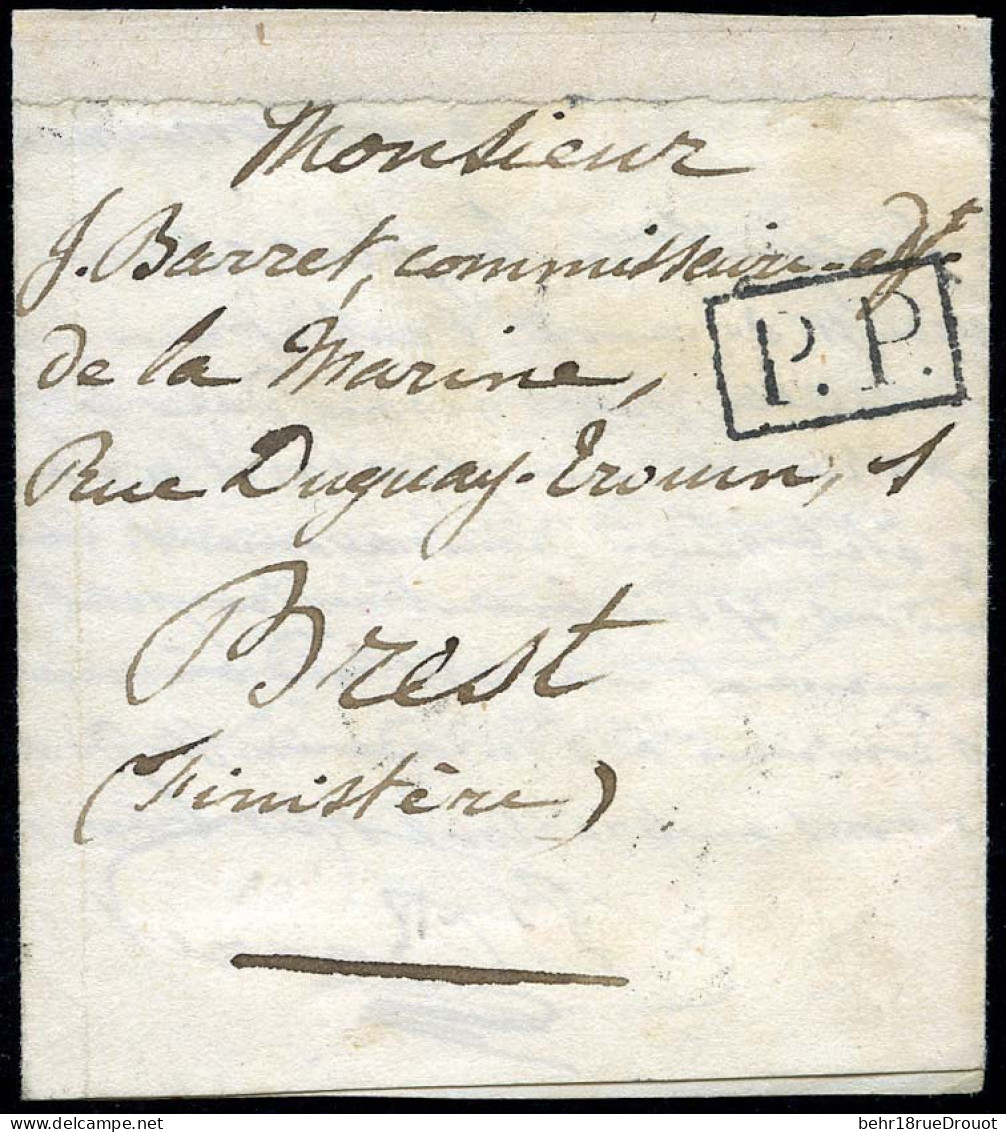 Monsieur
J. Barret, commissaire-adjt
de la Marine,
P.P.
Rue Duguay-Trouin, 1
Brest
(Finistère)
behr18rueDrouot